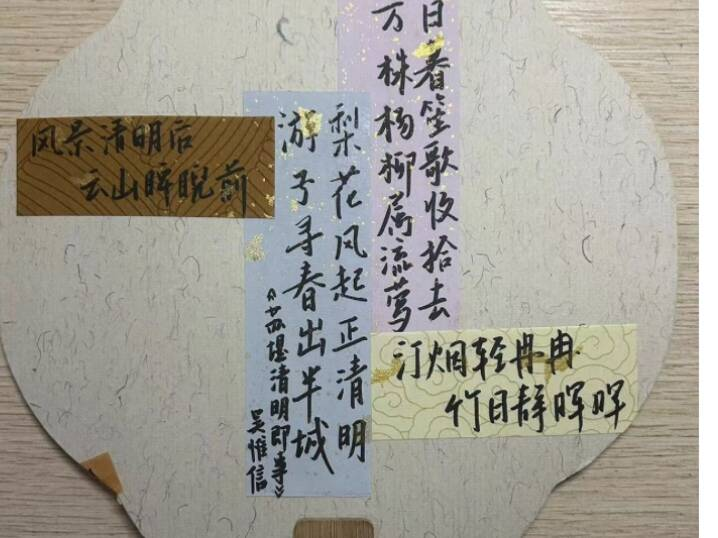 风景清明后
云山睥睨前
梨花风起正清明
游子寻春出半城
《苏堤清明即事》
吴惟信
日暮笙歌收拾去
万株杨柳属流莺
汀烟轻冉冉
竹日静晖晖